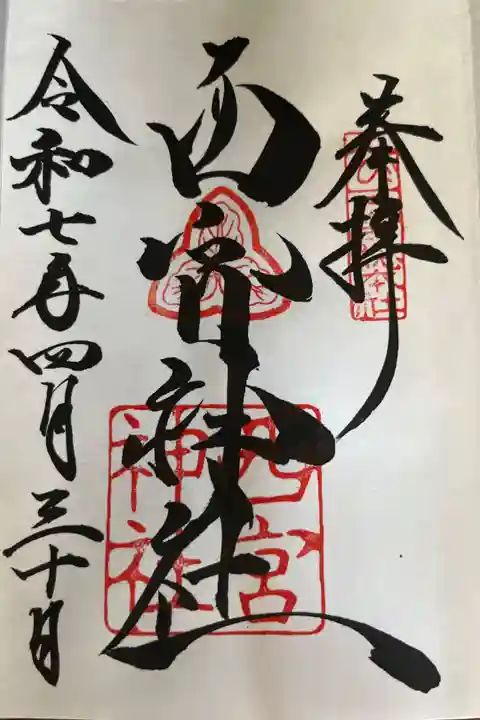 奉拝
西宮神社
西宮
神社
令和七年四月三十日